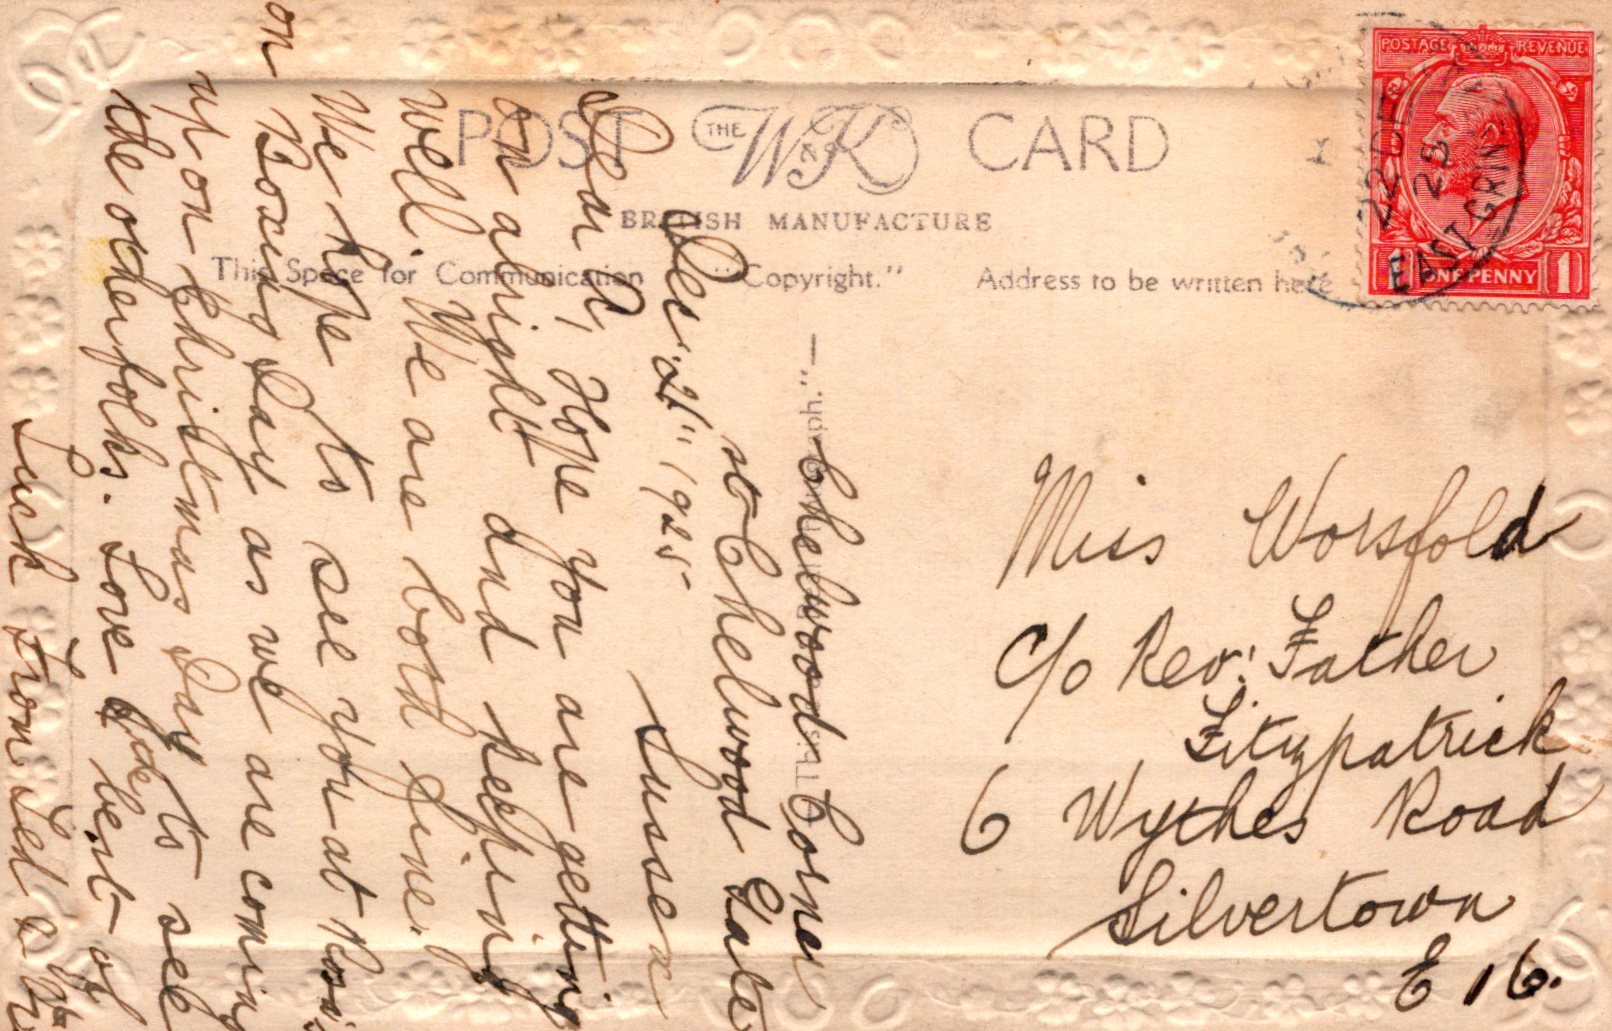 POST THE W&K CARD
BRITISH MANUFACTURE
This Space for Communication "Copyright." Address to be written here
POSTAGE REVENUE
ONE PENNY 1
22 DE
25
EAST GRIN
Chelwood Corner
nt Chelwood Gate
Sussex
Dec. 21" 1925
Dear L, Hope you are getting
on alright and keeping
well. We are both fine.
We hope to see you at
on Boxing Day as we are coming
up on Christmas Day to see
the other folks. Love & the best of
Luck from
Miss Worsfold
c/o Rev: Father
Fitzpatrick
6 Wythes Road
Silvertown
E 16.